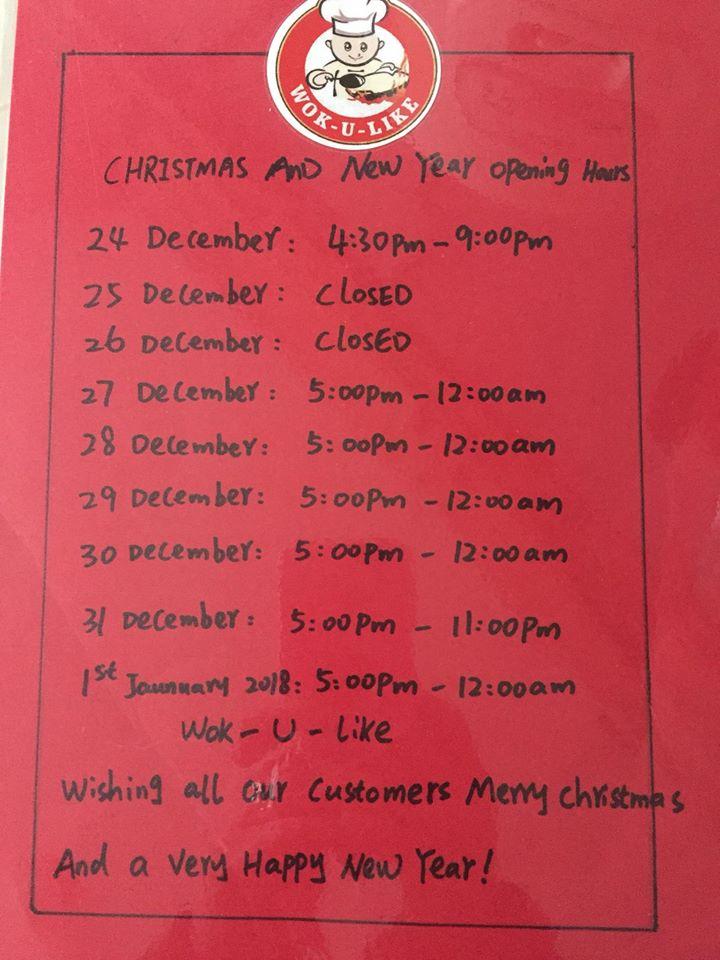 WOK-U-LIKE
CHRISTMAS AND New Year opening Hours
24 December: 4:30pm - 9:00pm
25 December: ClosED
26 December: ClosED
27 December: 5:00pm - 12:00am
28 December: 5:00pm - 12:00am
29 December: 5:00pm - 12:00am
30 December: 5:00pm - 12:00am
31 December: 5:00pm - 11:00pm
1st Jaunuary 2018: 5:00pm - 12:00am
Wok - U - Like
Wishing all our Customers Merry Christmas
And a Very Happy New Year!